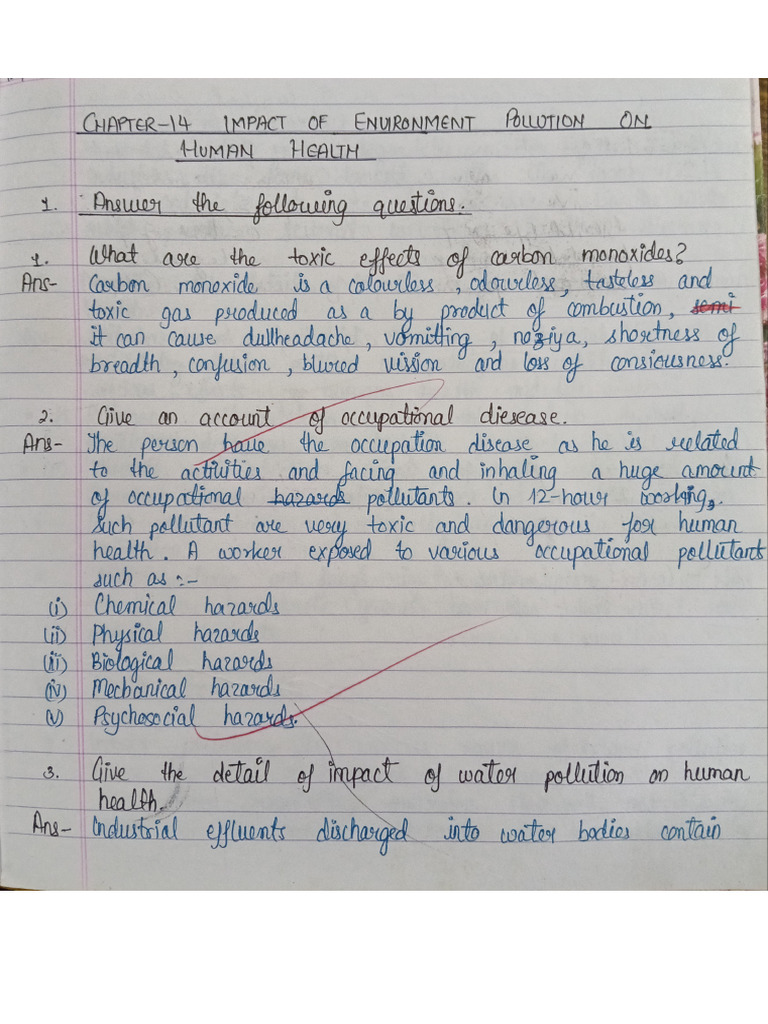 CHAPTER-14 IMPACT OF ENVIRONMENT POLLUTION ON
HUMAN HEALTH
1. Answer the following questions.
1. What are the toxic effects of carbon monoxides?
Ans- Carbon monoxide is a colourless, odourless, tasteless and
toxic gas produced as a by product of combustion, semi
it can cause dullheadache, vomitting, noziya, shortness of
breadth, confusion, blured vission and loss of consiousness.
2. Give an account of occupational diesease.
Ans- The person have the occupation disease as he is related
to the activities and facing and inhaling a huge amount
of occupational hazards pollutants. In 12-hour working,
such pollutant are very toxic and dangerous for human
health. A worker exposed to various occupational pollutants
such as :-
(i) Chemical hazards
(ii) Physical hazards
(iii) Biological hazards
(iv) Mechanical hazards
(v) Psychosocial hazards.
3. Give the detail of impact of water pollution on human
health.
Ans- Industrial effluents discharged into water bodies contain